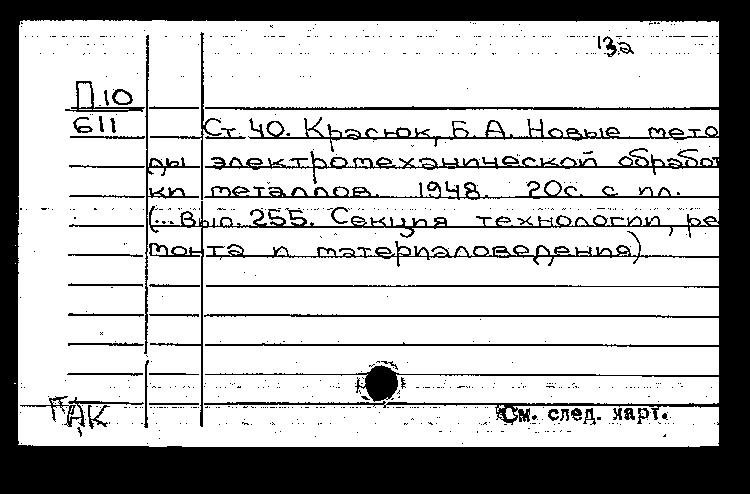 132
П10
611
Ст. 40. Красюк, Б. А. Новые мето
ды электромеханической обработ
ки металлов. 1948. 20с. с ил.
(... Вып. 255. Секция технологии, ре
монта и материаловедения)
ГДК
См. след. карт.